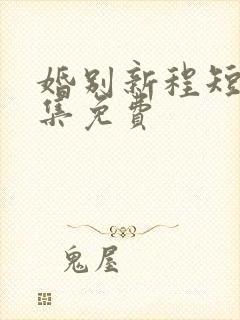 婚别新程短
集免费
鬼屋